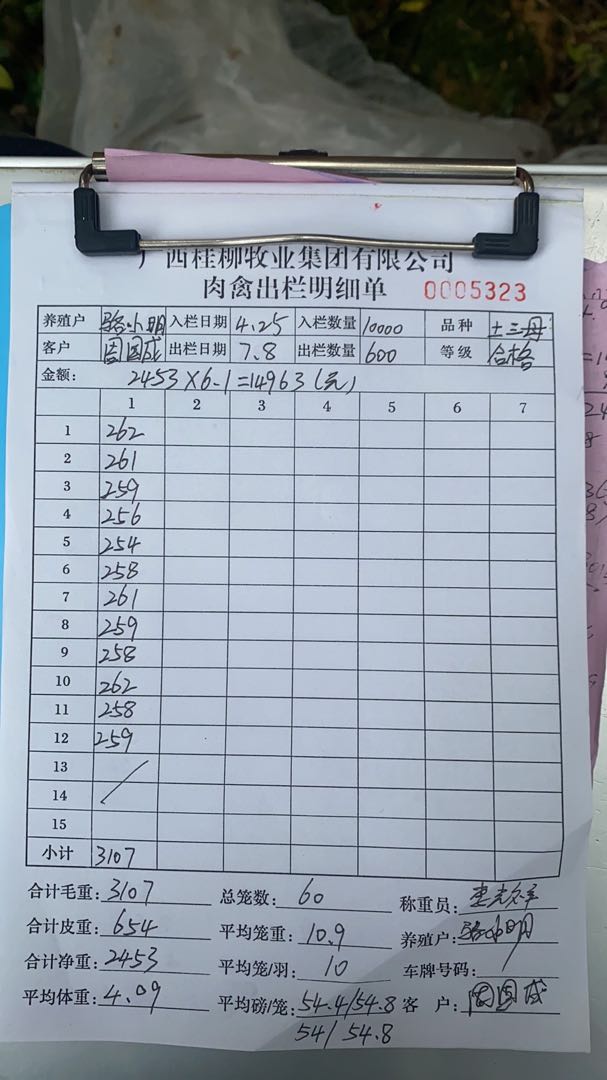 广西桂柳牧业集团有限公司
肉禽出栏明细单 0005323
养殖户 骆小明 入栏日期 4.25 入栏数量 10000 品种 土三母
客户 周国成 出栏日期 7.8 出栏数量 600 等级 合格
金额: 2453×6.1=14963(元)
1 2 3 4 5 6 7
1 262
2 261
3 259
4 256
5 254
6 258
7 261
8 259
9 258
10 262
11 258
12 259
13
14
15
小计 3107
合计毛重: 3107 总笼数: 60 称重员:
合计皮重: 654 平均笼重: 10.9 养殖户: 骆小明
合计净重: 2453 平均笼/羽: 10 车牌号码: /
平均体重: 4.09 平均磅/笼: 54.4/54.8 客 户: 周国成
54/54.8